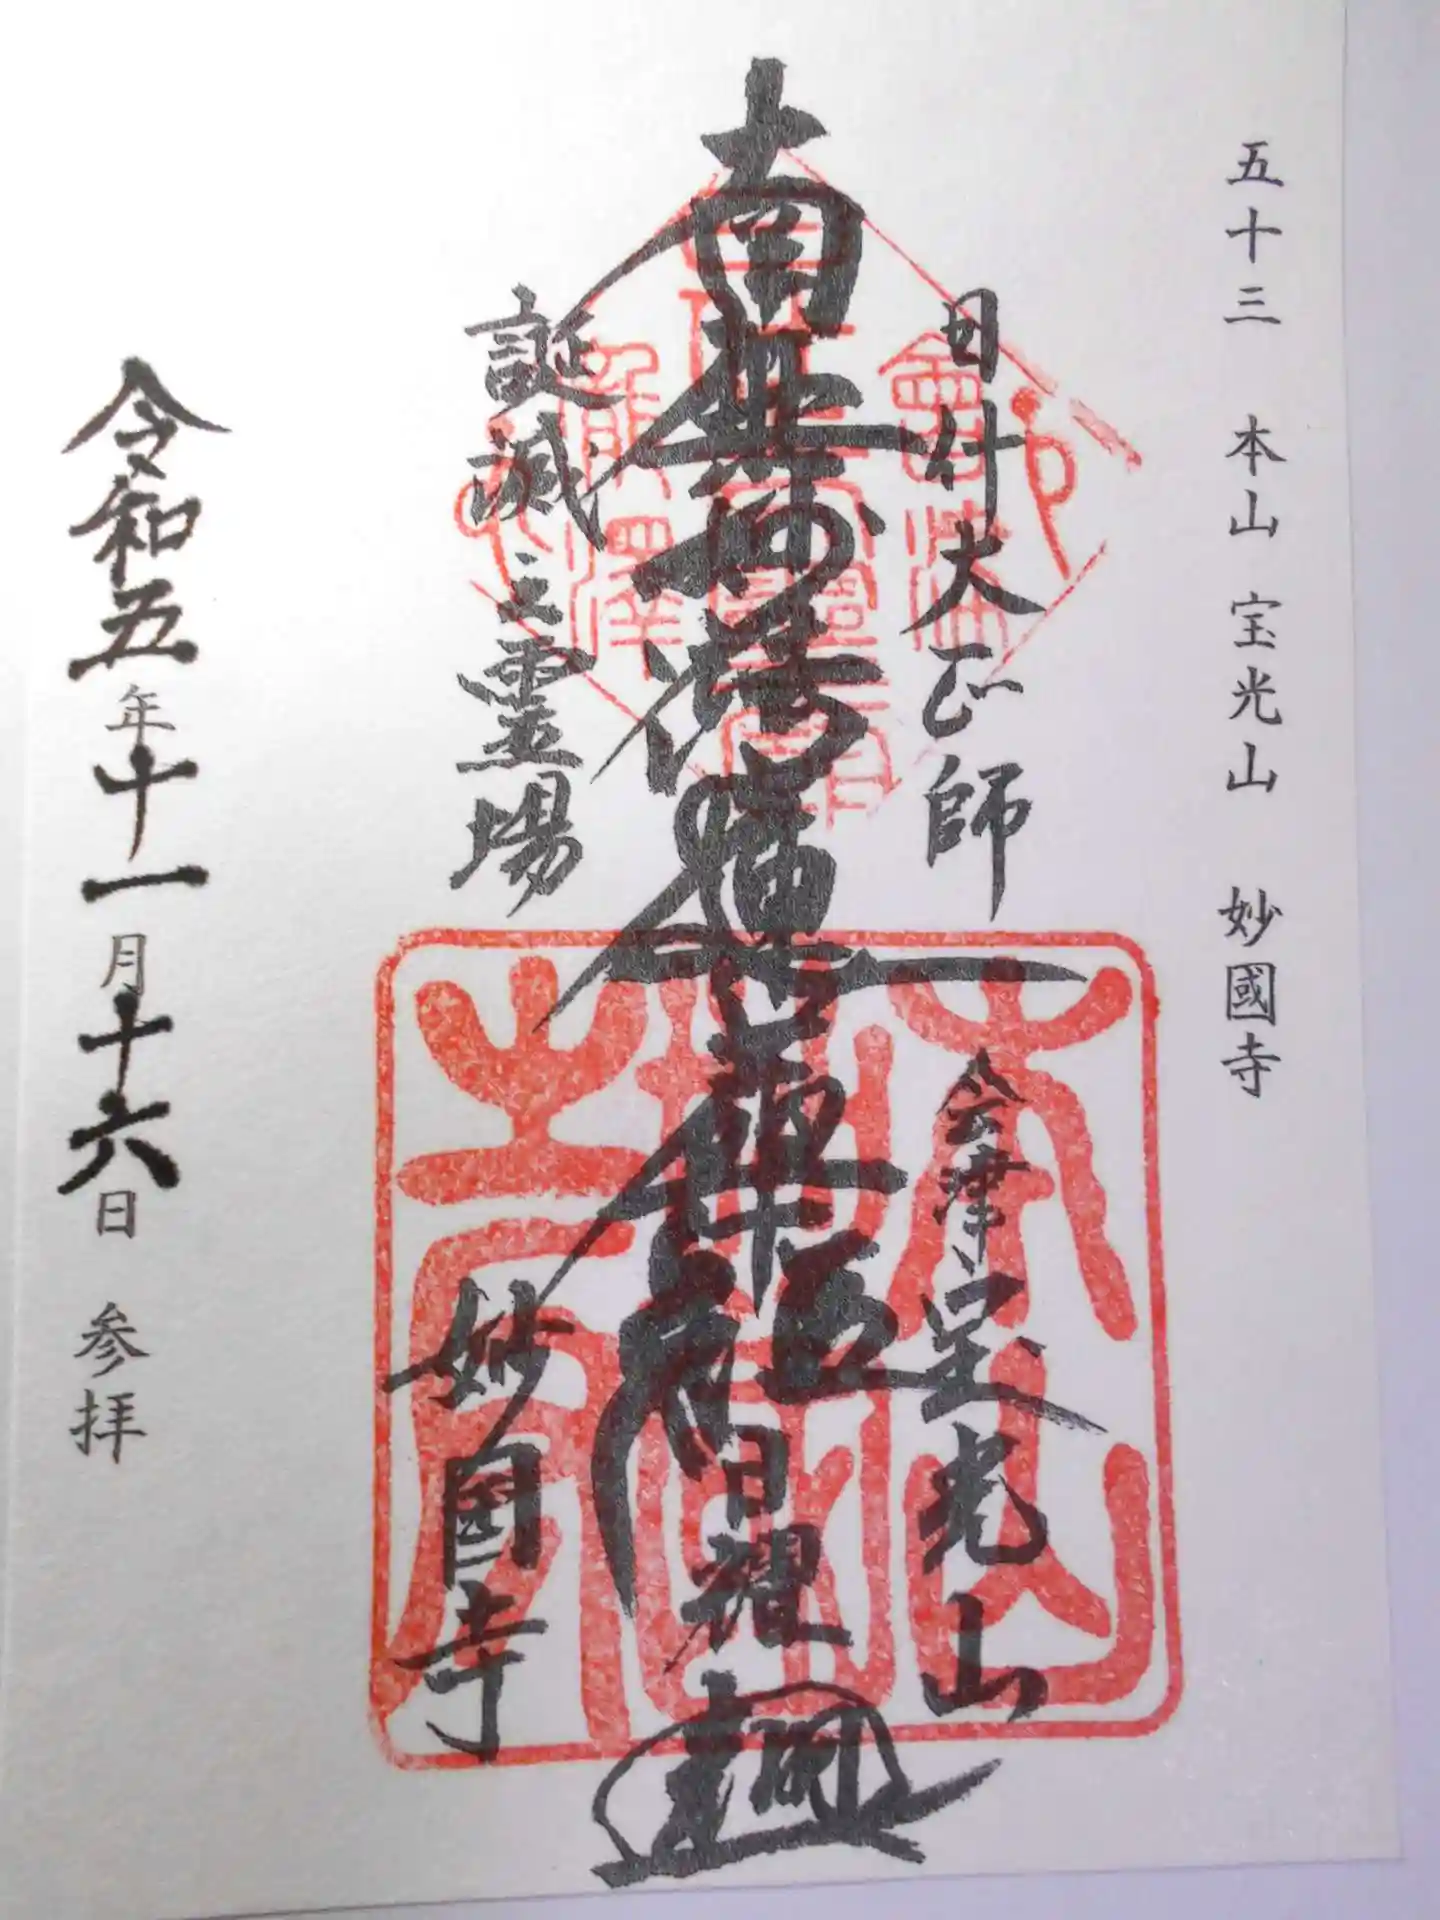 五十三 本山 宝光山 妙國寺
日什大正師
会津 宝光山
南無妙法蓮華経
日
誕滅之霊場
妙国寺
令和五年十一月十六日 参拝